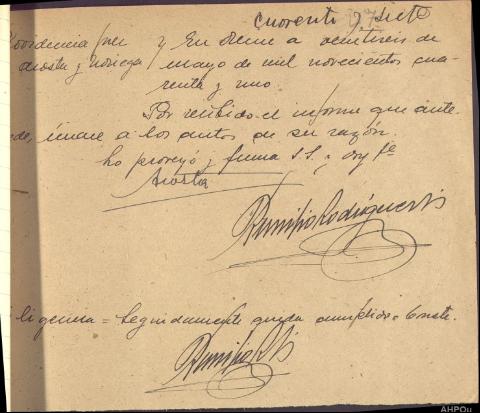 Cuarenta y siete
Providencia Juez } En Orense a veintiseis de
Acosta y Noriega } mayo de mil novecientos cua-
renta y uno.
Por recibido el informe que ante-
cede, únase a los autos de su razón.
Lo proveyó y firma S.S.ª; doy fe
Acosta
Remigio Rodríguez
ligencia = Seguidamente queda cumplido. Conste.
AHPOu